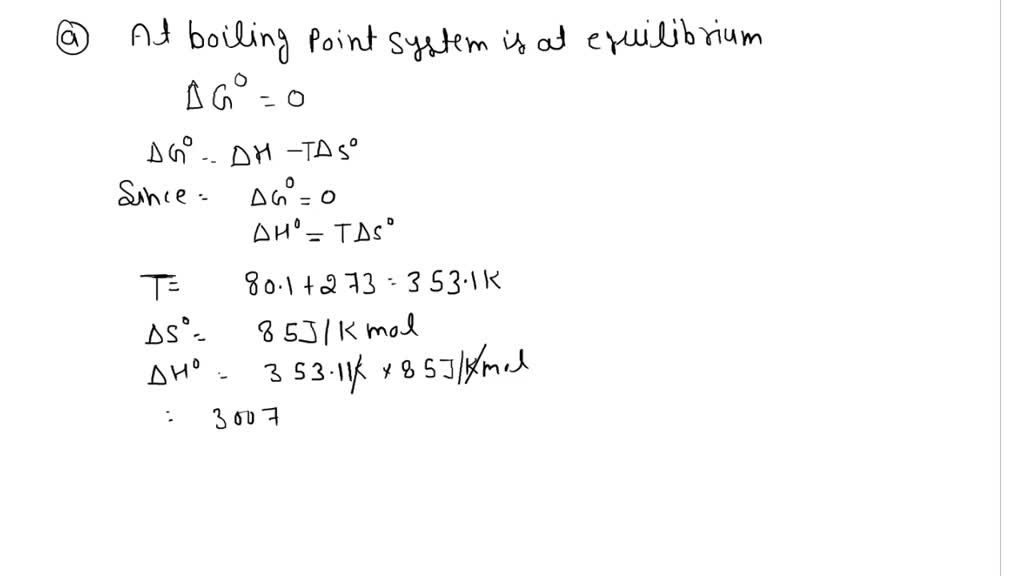 (a) At boiling point system is at equilibrium
ΔG° = 0
ΔG° = ΔH - TΔS°
Since = ΔG° = 0
ΔH° = TΔS°
T = 80.1 + 273 = 353.1K
ΔS° = 85J/K mol
ΔH° = 353.1K × 85J/K mol
= 3007